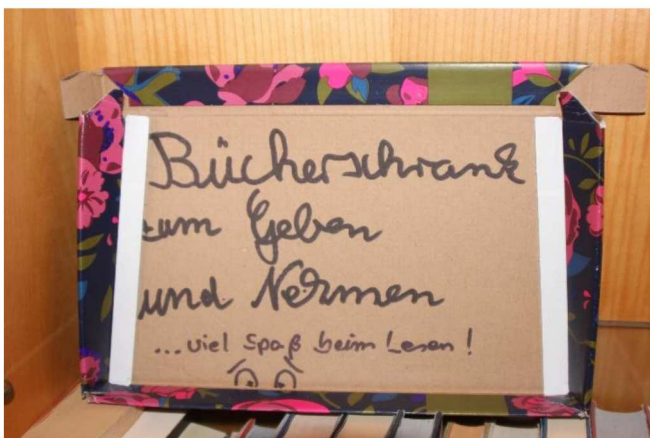 Bücherschrank
zum Geben
und Nehmen
...viel Spaß beim Lesen!